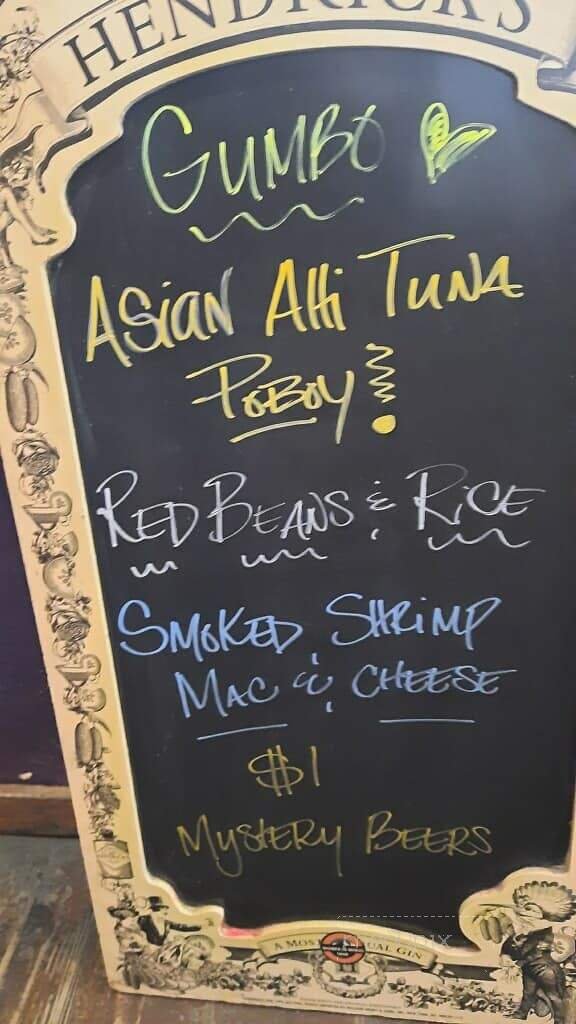 HENDRICK'S
GUMBO
ASIAN AHI TUNA
POBOY!
RED BEANS & RICE
SMOKED SHRIMP
MAC & CHEESE
$1
MYSTERY BEERS
A MOST UNUSUAL GIN